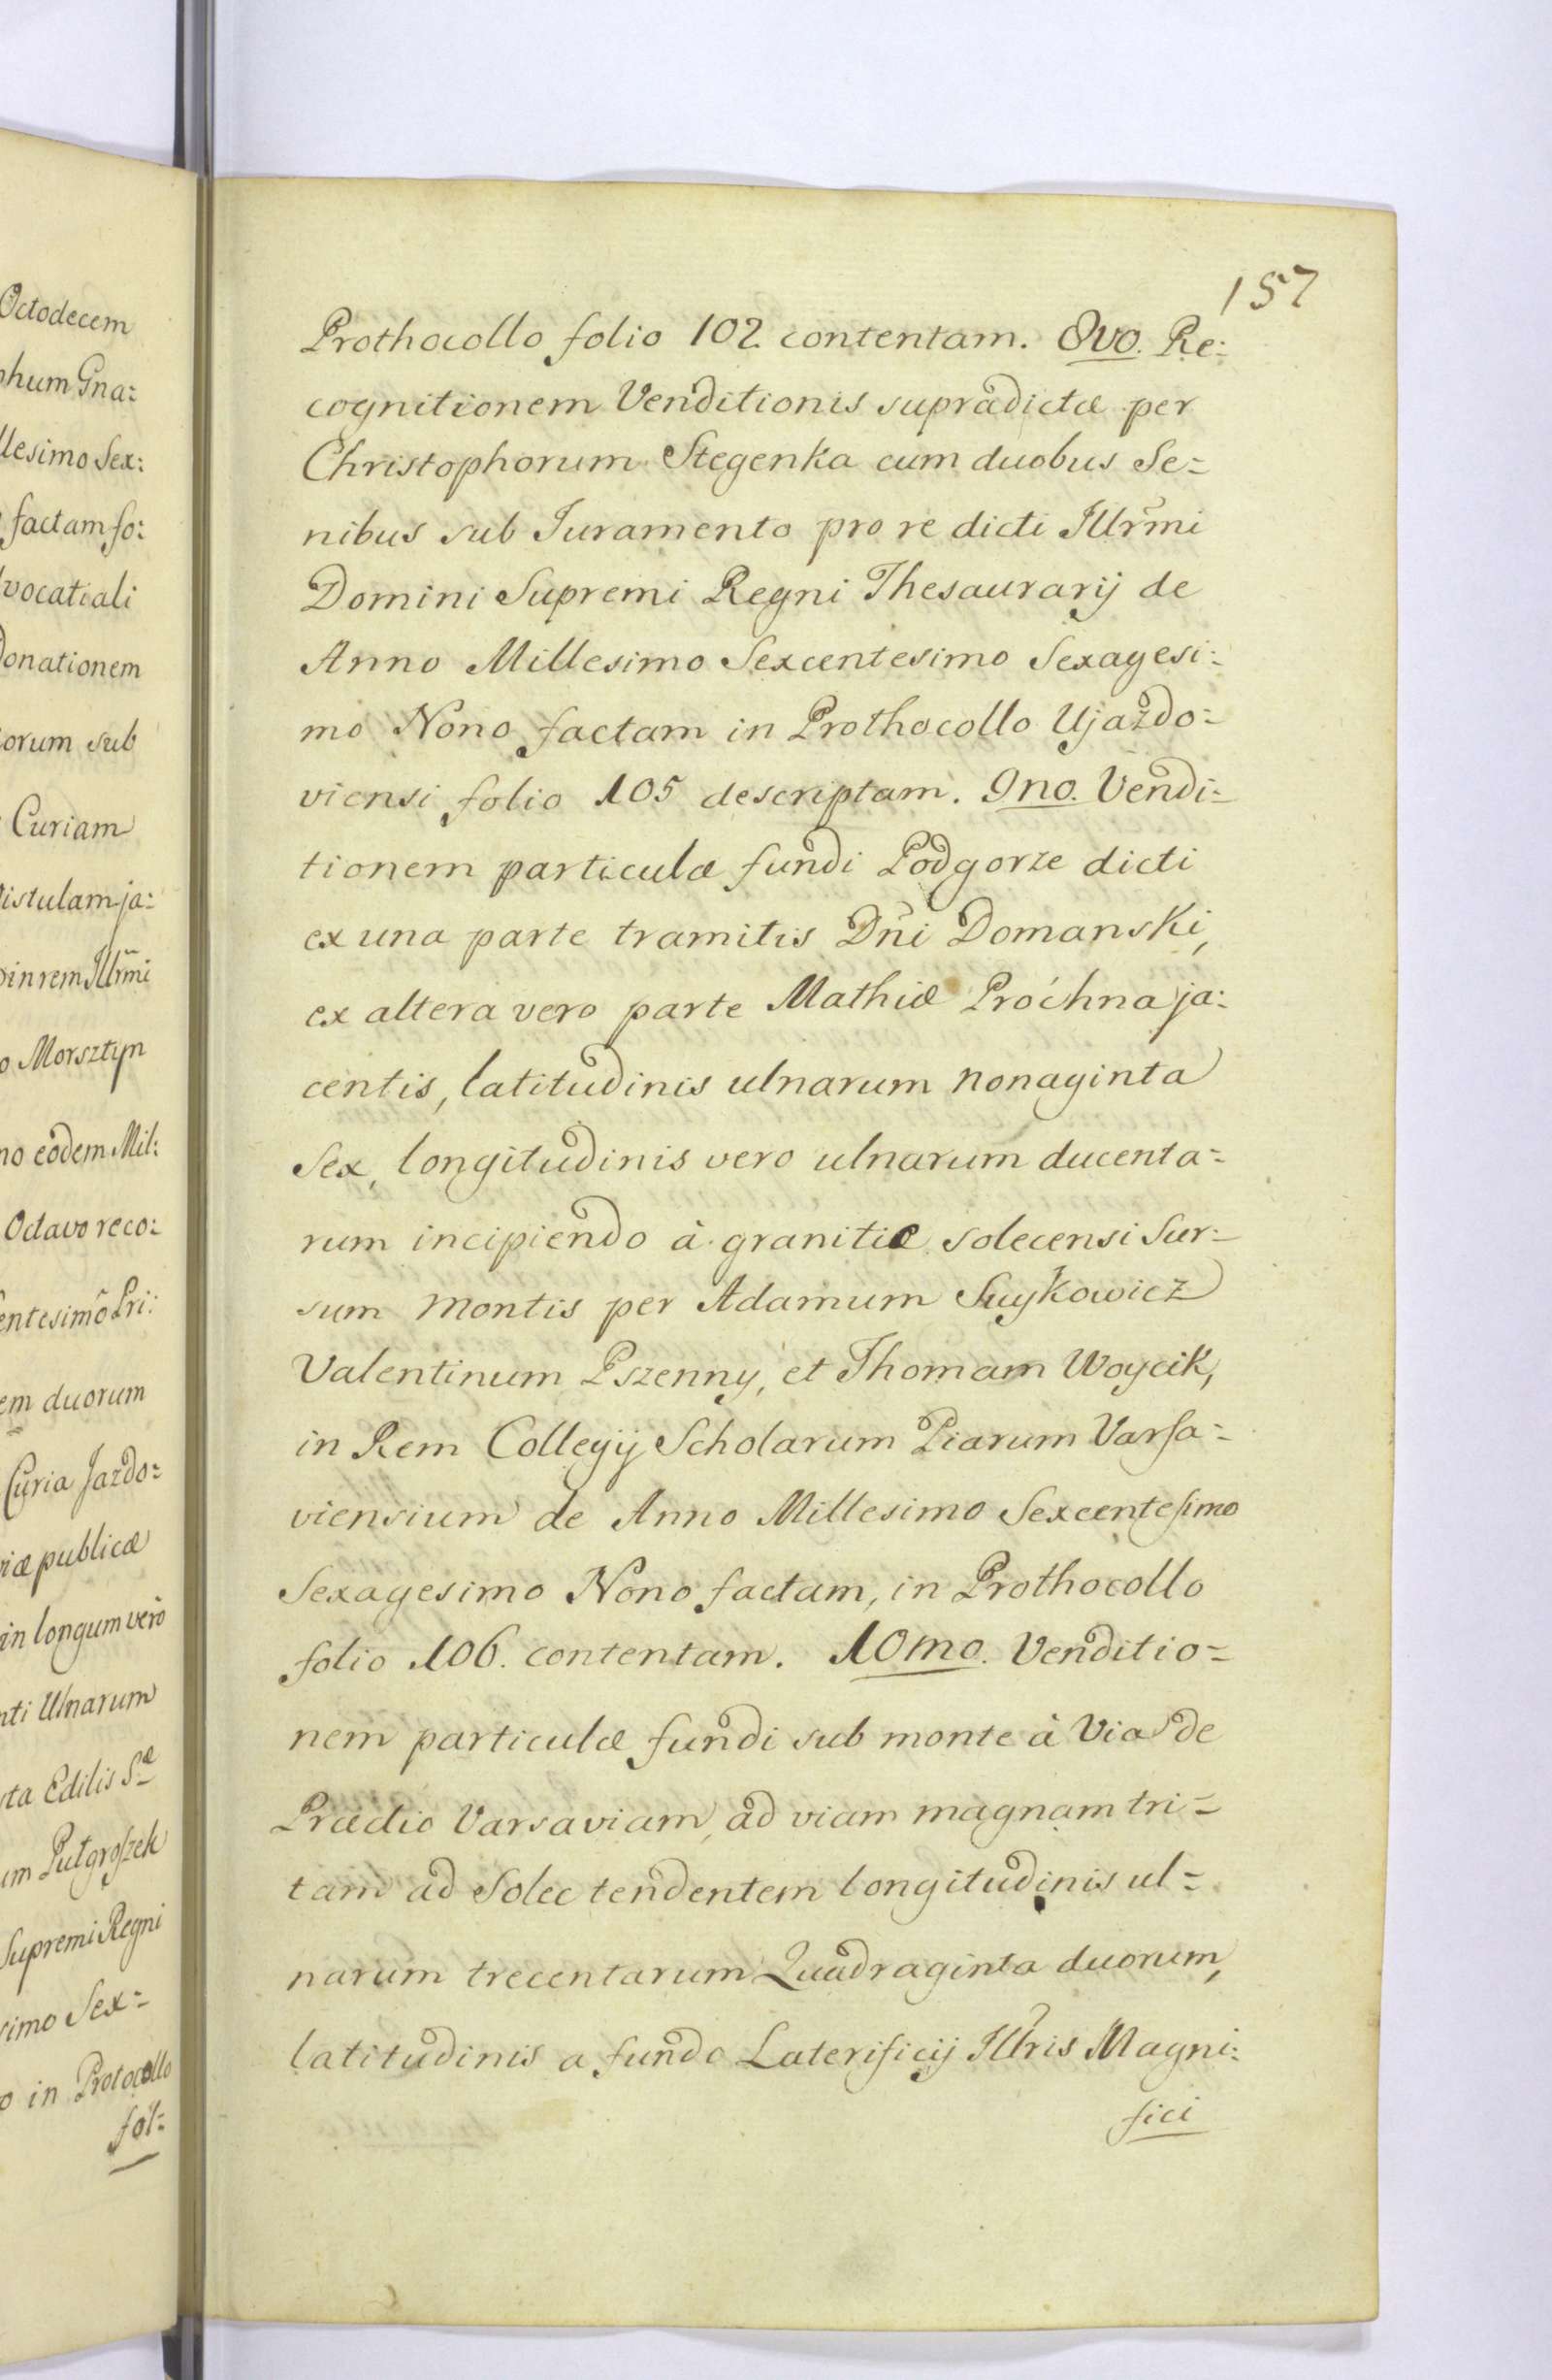 Octodecem
phum Gna:
llesimo Sex:
factam fo:
vocatiali
Donationem
orum sub
Curiam
istulam ja:
in rem Illr̃mi
o Morsztyn
no eodem Mil:
Octavo reco:
entesimo Pri:
em duorum
Curia Jazdo:
viæ publicæ
in longum vero
nti Ulnarum
ta Edilis S.æ
um Pułgroszek
Supremi Regni
simo Sex=
o in Protocollo
fol:
157
Prothocollo folio 102 contentam. 8vo. Re:
cognitionem Venditionis supradictæ per
Christophorum Stegenka cum duobus Se=
nibus sub Juramento pro re dicti Illr̃mi
Domini Supremi Regni Thesaurarij de
Anno Millesimo Sexcentesimo Sexagesi:
mo Nono factam in Prothocollo Ujazdo=
viensi folio 105 descriptam. 9no. Vendi=
tionem particulæ fundi Podgorze dicti
ex una parte tramitis Dñi Domanski,
ex altera vero parte Mathiæ Próchna ja:
centis, latitudinis ulnarum nonaginta
Sex, longitudinis vero ulnarum ducenta=
rum incipiendo à granitiæ solecensi Sur=
sum Montis per Adamum Suykowicz
Valentinum Pszenny, et Thomam Woycik,
in Rem Collegij Scholarum Piarum Varsa=
viensium de Anno Millesimo Sexcentesimo
Sexagesimo Nono factam, in Prothocollo
folio 106. contentam. 10mo. Venditio=
nem particulæ fundi sub monte à Via de
Prædio Varsaviam, ad viam magnam tri=
tam ad Solec tendentem longitudinis ul=
narum trecentarum Quadraginta duorum,
latitudinis a fundo Laterificij Illr̃is Magni:
fici